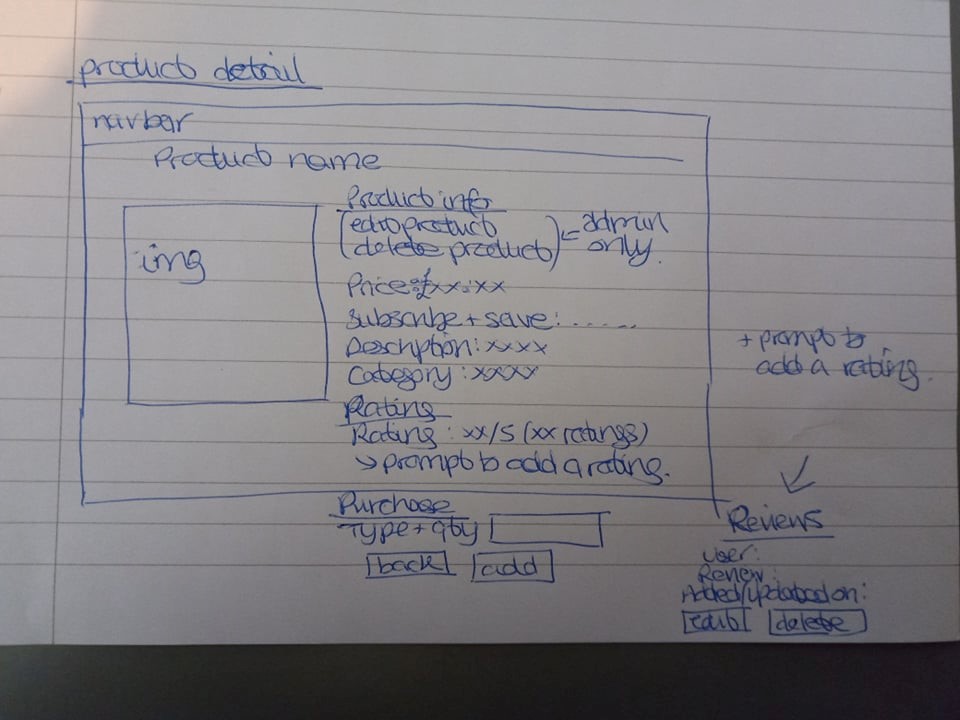 product detail
navbar
Product name
img
Product info
(edit product
delete product) = admin only.
Price: £xx.xx
Subscribe + save: ......
Description: xxxx
Category: xxxx
Rating
Rating: xx/5 (xx ratings)
↳ prompt to add a rating.
Purchase
Type + qty
back add
+ prompt to
add a rating.
Reviews
user:
Review:
Added/updated on:
edit delete